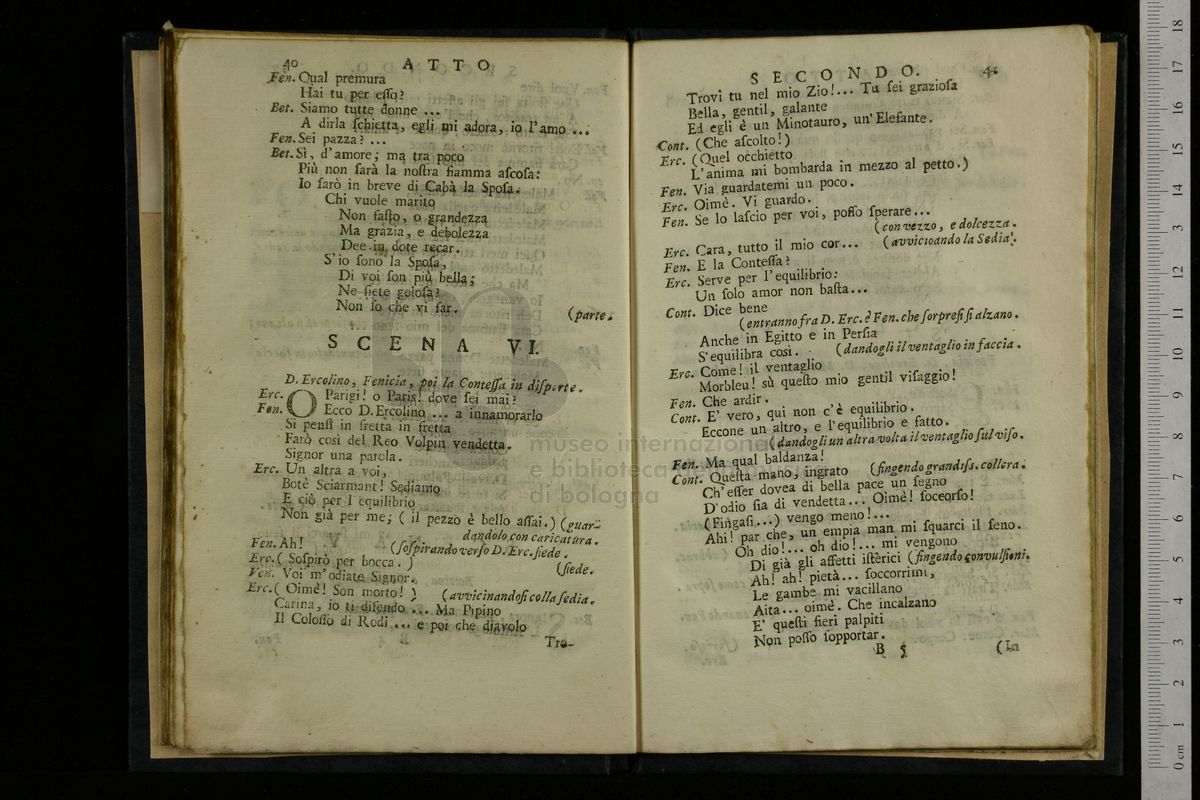 40 ATTO
Fen. Qual premura
Hai tu per eſſo?
Bet. Siamo tutte donne ...
A dirla ſchietta, egli mi adora, io l'amo ...
Fen. Sei pazza? ...
Bet. Sì, d'amore; ma tra poco
Più non ſarà la noſtra fiamma aſcoſa:
Io ſarò in breve di Cabà la Spoſa.
Chi vuole marito
Non faſto, o grandezza
Ma grazia, e debolezza
Dee in dote recar.
S'io ſono la Spoſa,
Di voi ſon più bella;
Ne ſiete goloſa?
Non ſo che vi far. (parte.
SCENA VI.
D. Ercolino, Fenicia, poi la Conteſſa in diſparte.
Erc. O Parigi! o Paris! dove ſei mai?
Fen. Ecco D. Ercolino ... a innamorarlo
Si penſi in fretta in fretta
Farò così del Reo Volpin vendetta.
Signor una parola.
Erc. Un altra a voi,
Botè Sciarmant! Sediamo
E ciò per l equilibrio
Non già per me; ( il pezzo è bello aſſai.) (guar-
dandolo con caricatura.
Fen. Ah! (ſoſpirando verſo D. Erc. ſiede.
Erc. ( Soſpirò per bocca. ) (ſiede.
Fen. Voi m'odiate Signor.
Erc. ( Oimè! Son morto! ) (avvicinandoſi colla ſedia.
Carina, io ti difendo ... Ma Pipino
Il Coloſſo di Rodi ... e poi che diavolo
Tro-
SECONDO. 41
Trovi tu nel mio Zio!... Tu ſei grazioſa
Bella, gentil, galante
Ed egli è un Minotauro, un'Elefante.
Cont. (Che aſcolto!)
Erc. (Quel occhietto
L'anima mi bombarda in mezzo al petto.)
Fen. Via guardatemi un poco.
Erc. Oimè. Vi guardo.
Fen. Se lo laſcio per voi, poſſo ſperare...
(con vezzo, e dolcezza.
Erc. Cara, tutto il mio cor... (avvicioando la Sedia.
Fen. E la Conteſſa?
Erc. Serve per l'equilibrio:
Un ſolo amor non baſta...
Cont. Dice bene
(entranno fra D. Erc. è Fen. che ſorpreſi ſi alzano.
Anche in Egitto e in Perſia
S'equilibra così. (dandogli il ventaglio in faccia.
Erc. Come! il ventaglio
Morbleu! sù queſto mio gentil viſaggio!
Fen. Che ardir.
Cont. E' vero, quì non c'è equilibrio.
Eccone un altro, e l'equilibrio e fatto.
(dandogli un altra volta il ventaglio ſul viſo.
Fen. Ma qual baldanza!
Cont. Queſta mano, ingrato (fingendo grandiſs. collera.
Ch'eſſer dovea di bella pace un ſegno
D'odio ſia di vendetta... Oimè! ſoccorſo!
(Fingaſi...) vengo meno!...
Ahi! par che, un empia man mi ſquarci il ſeno.
Oh dio!... oh dio!... mi vengono
Di già gli affetti iſtèrici (fingendo convulſioni.
Ah! ah! pietà... ſoccorrimi,
Le gambe mi vacillano
Aita... oimè. Che incalzano
E' queſti fieri palpiti
Non poſſo ſopportar.
B 5 (In
museo internazionale
e biblioteca della musica
di bologna